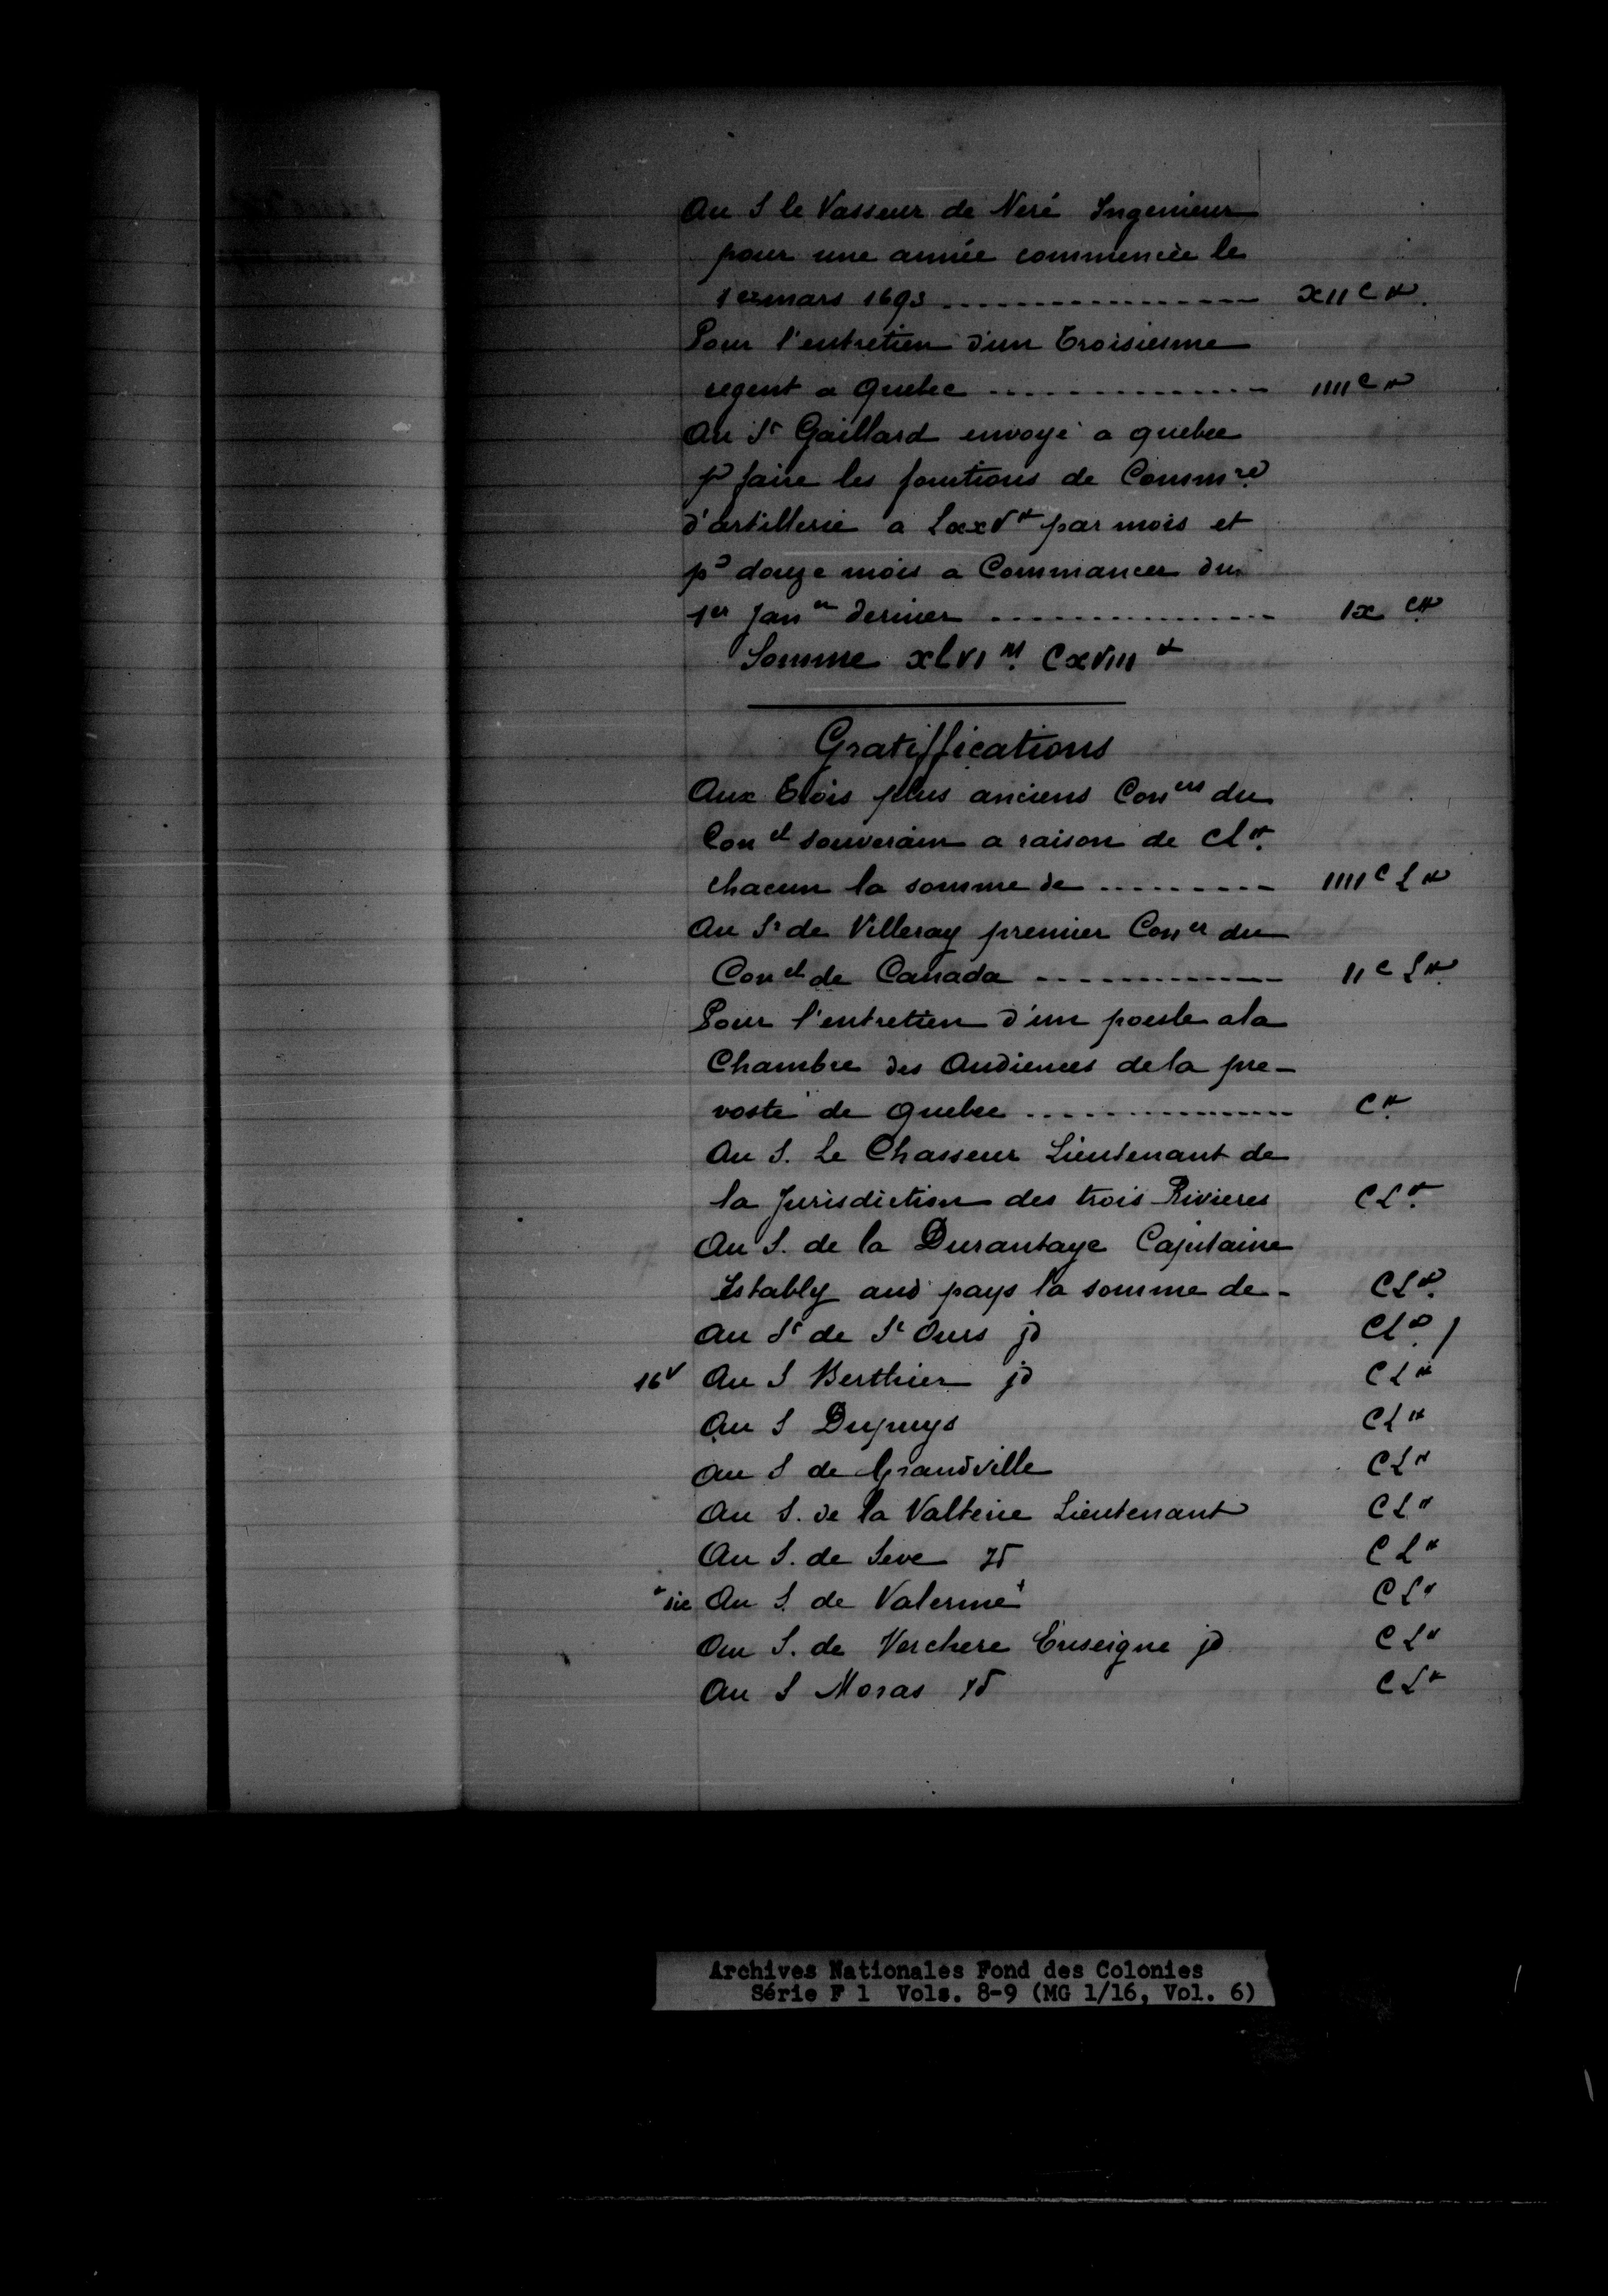 Au S le Vasseur de Neré Ingenieur
pour une année commencée le
1er mars 1693 ................ XIIc ₶.
Pour l'entretien d'un troisiesme
regent a Quebec .............. IIIIc ₶
Au Sr Gaillard envoyé a quebec
pr faire les fonctions de Commre
d'artillerie a LxxV₶ par mois et
pr douze mois a Commancer du
1er Janer dernier ............... Ix c₶
Somme xlVIM CxVIII ₶
Gratiffications
Aux trois plus anciens Coners du
Conel souverain a raison de Cl₶.
chacun la somme de ......... IIIIc L₶
Au Sr de Villeray premier Coner du
Conel de Canada ............. IIc L₶
Pour l'entretien d'un poesle a la
Chambre des Audiences de la pre-
vosté de Quebec .............. C₶
Au S. Le Chasseur Lieutenant de
la Jurisdiction des trois Rivieres CL₶.
Au S. de la Durantaye Capitaine
Estably aud pays la somme de - CL₶.
Au Sr de St Ours jd CL₶
16v Au S Berthier jd CL₶
Au S Dupuys CL₶
Au S de Grandville CL₶
Au S. de la Valterie Lieutenant CL₶
Au S. de Seve jd CL₶
+ sic Au S. de Valerme+ CL₶
Au S. de Verchere Enseigne jd CL₶
Au S Moras jd CL₶
Archives Nationales Fond des Colonies
Série F 1 Vols. 8-9 (MG 1/16, Vol. 6)